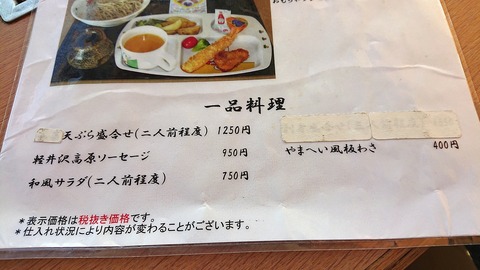 一品料理
天ぷら盛合せ(二人前程度) 1250円
軽井沢高原ソーセージ 950円
和風サラダ(二人前程度) 750円
やまへい風板わさ 400円
＊表示価格は税抜き価格です。
＊仕入れ状況により内容が変わることがございます。